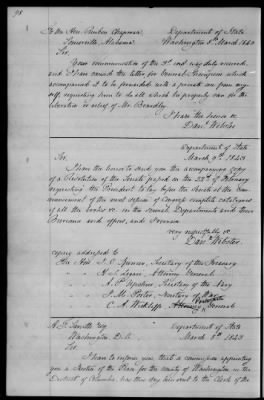 98
To the Hon. Reuben Chapman, Department of State
Somerville, Alabama Washington 8th March 1843
Sir,
Your communication of the 3d inst. was duly received,
and I have caused the letter for Consul
accompanied it to be forwarded with a private one from my-
self, requesting him to do all which he properly can for the
liberation or relief of Mr. Bradley
I have the honor to be
Danl. Webster
Department of State
Sir, March 9th 1843
I have the honor to send you the accompanying copy
of a Resolution of the Senate passed on the of February
requesting the President to lay before the Senate at the com-
mencement of the next session of Congress complete catalogues
of all the books &c. in the several Departments and their
Bureaus and offices, and I am
very respectfully &c
Danl. Webster.
copies addressed to
The Hon. J. C. Spencer, Secretary of the Treasury
" " H. S. Legaré, Attorney General
" " A. P. Upshur, Secretary of the Navy
" " J. M. Porter, Secretary of War
" " C. A. Wickliffe, Attorney General
Department of State
Washington, D.C. March 8th 1843
Sir,
I have to inform you, that a commission appointing
you a Justice of the Peace for the county of Washington in the
District of Columbia, has this day been sent to the Clerk of the